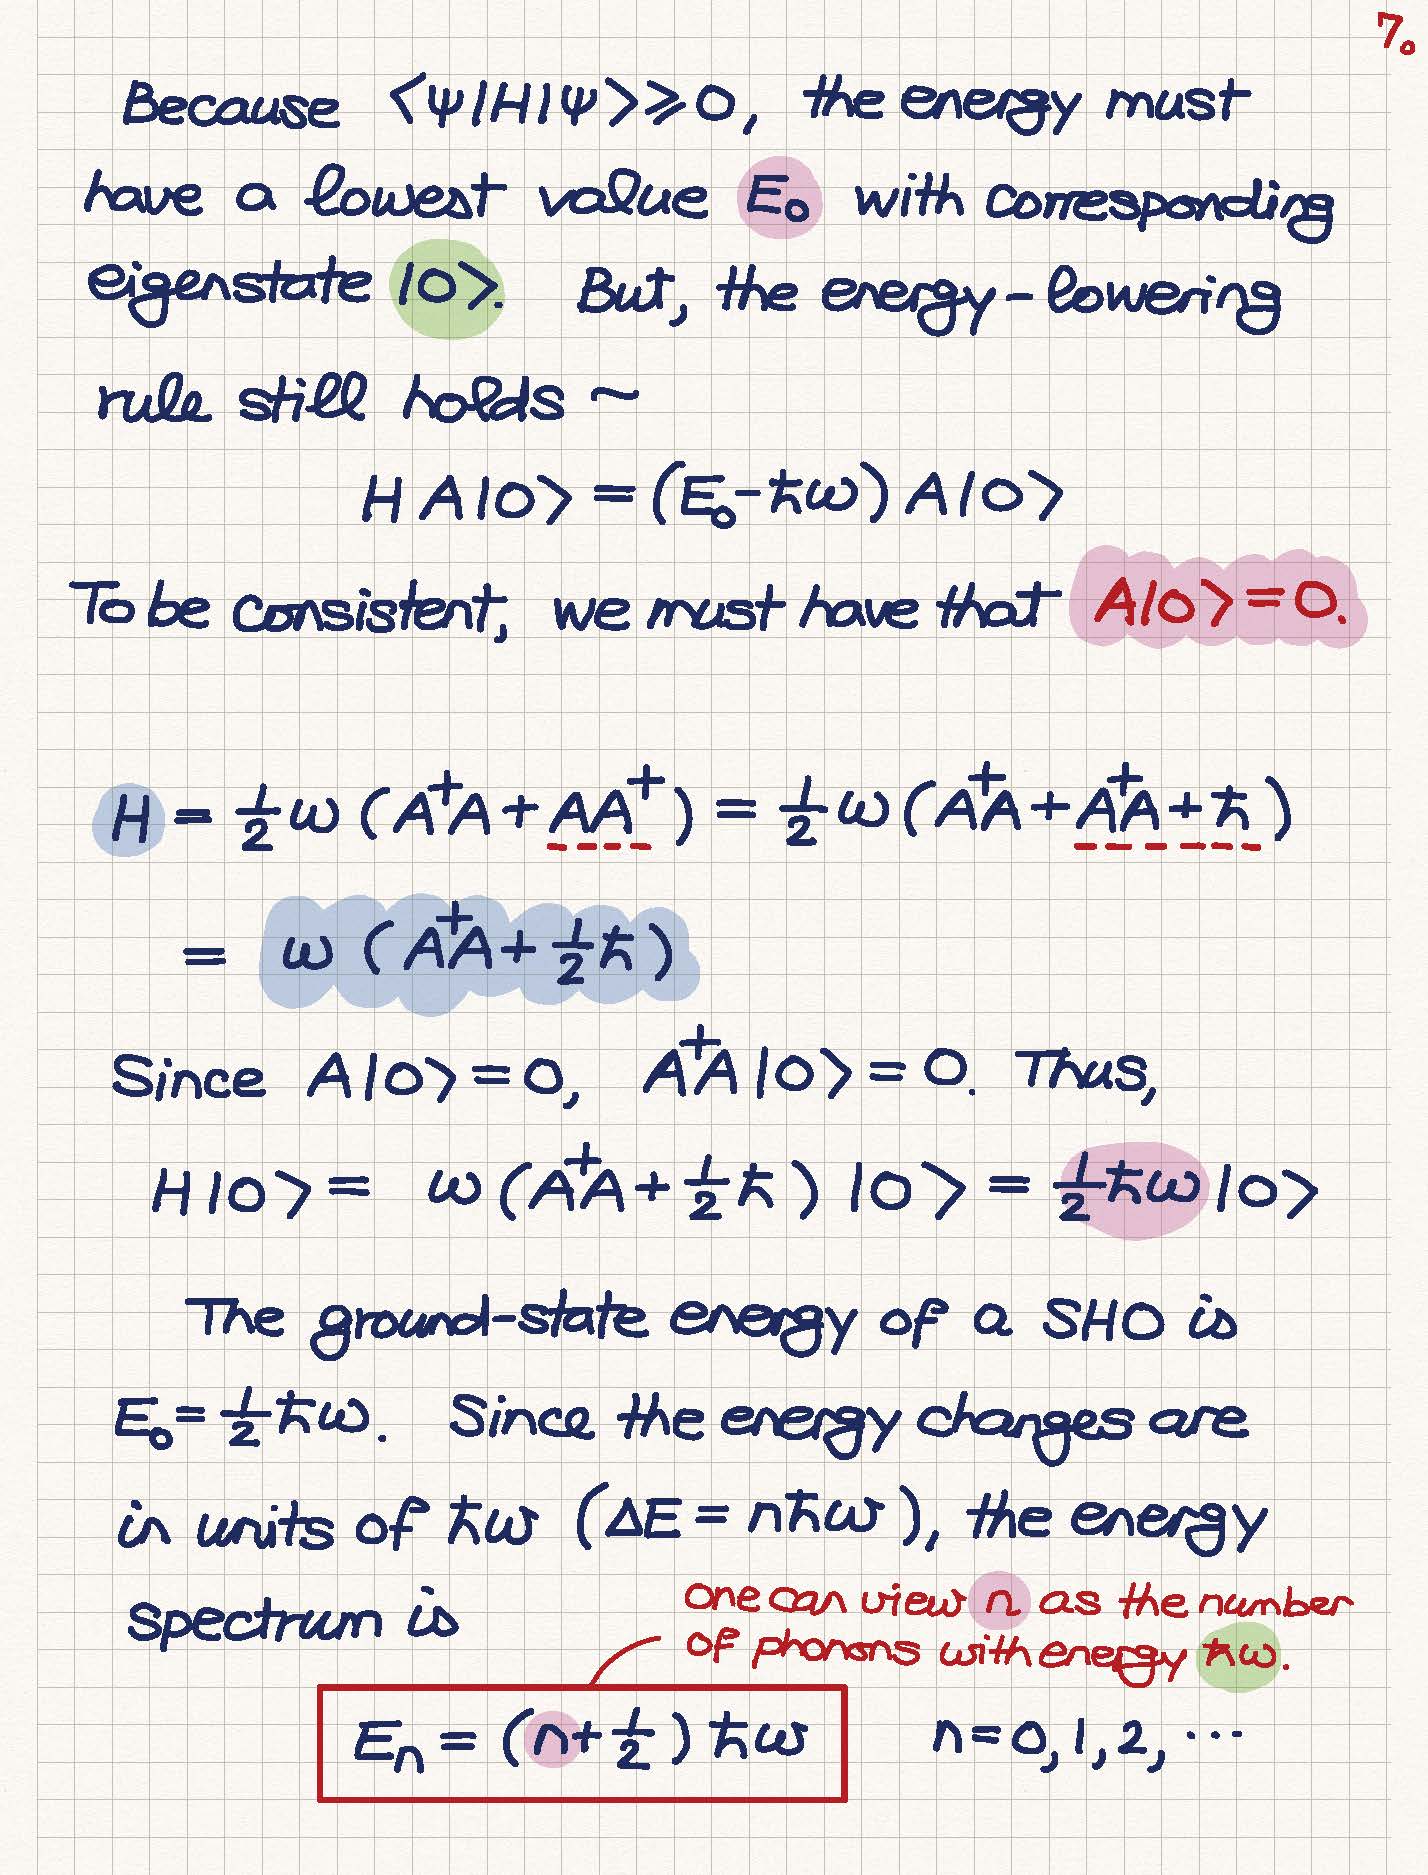 7.
Because ⟨ψ|H|ψ⟩⩾0, the energy must
have a lowest value E₀ with corresponding
eigenstate |0⟩. But, the energy-lowering
rule still holds ~
H A|0⟩ = (E₀-ħω) A|0⟩
To be consistent, we must have that A|0⟩=0.
H = ½ω (A⁺A + AA⁺) = ½ω (A⁺A + A⁺A + ħ)
= ω (A⁺A + ½ħ)
Since A|0⟩=0, A⁺A|0⟩=0. Thus,
H|0⟩ = ω(A⁺A + ½ħ) |0⟩ = ½ħω|0⟩
The ground-state energy of a SHO is
E₀ = ½ħω. Since the energy changes are
in units of ħω (ΔE = nħω), the energy
spectrum is
one can view n as the number
of phonons with energy ħω.
Eₙ = (n+½) ħω n=0,1,2,⋯